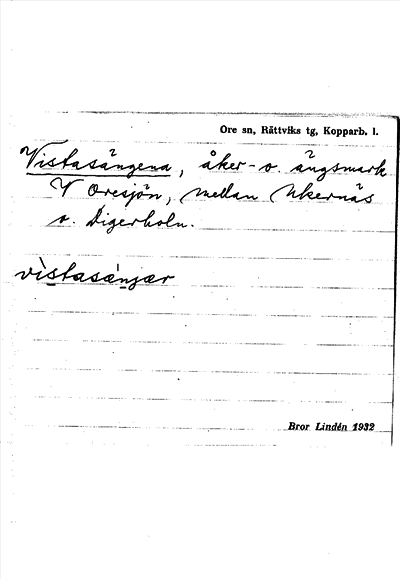 Ore sn, Rättviks tg, Kopparb. l.
Vistasängena, åker- o. ängsmark
V Oresjön, mellan Ukernäs
o. Digerholn.
vìstasæ̀ŋær
Bror Lindén 1932